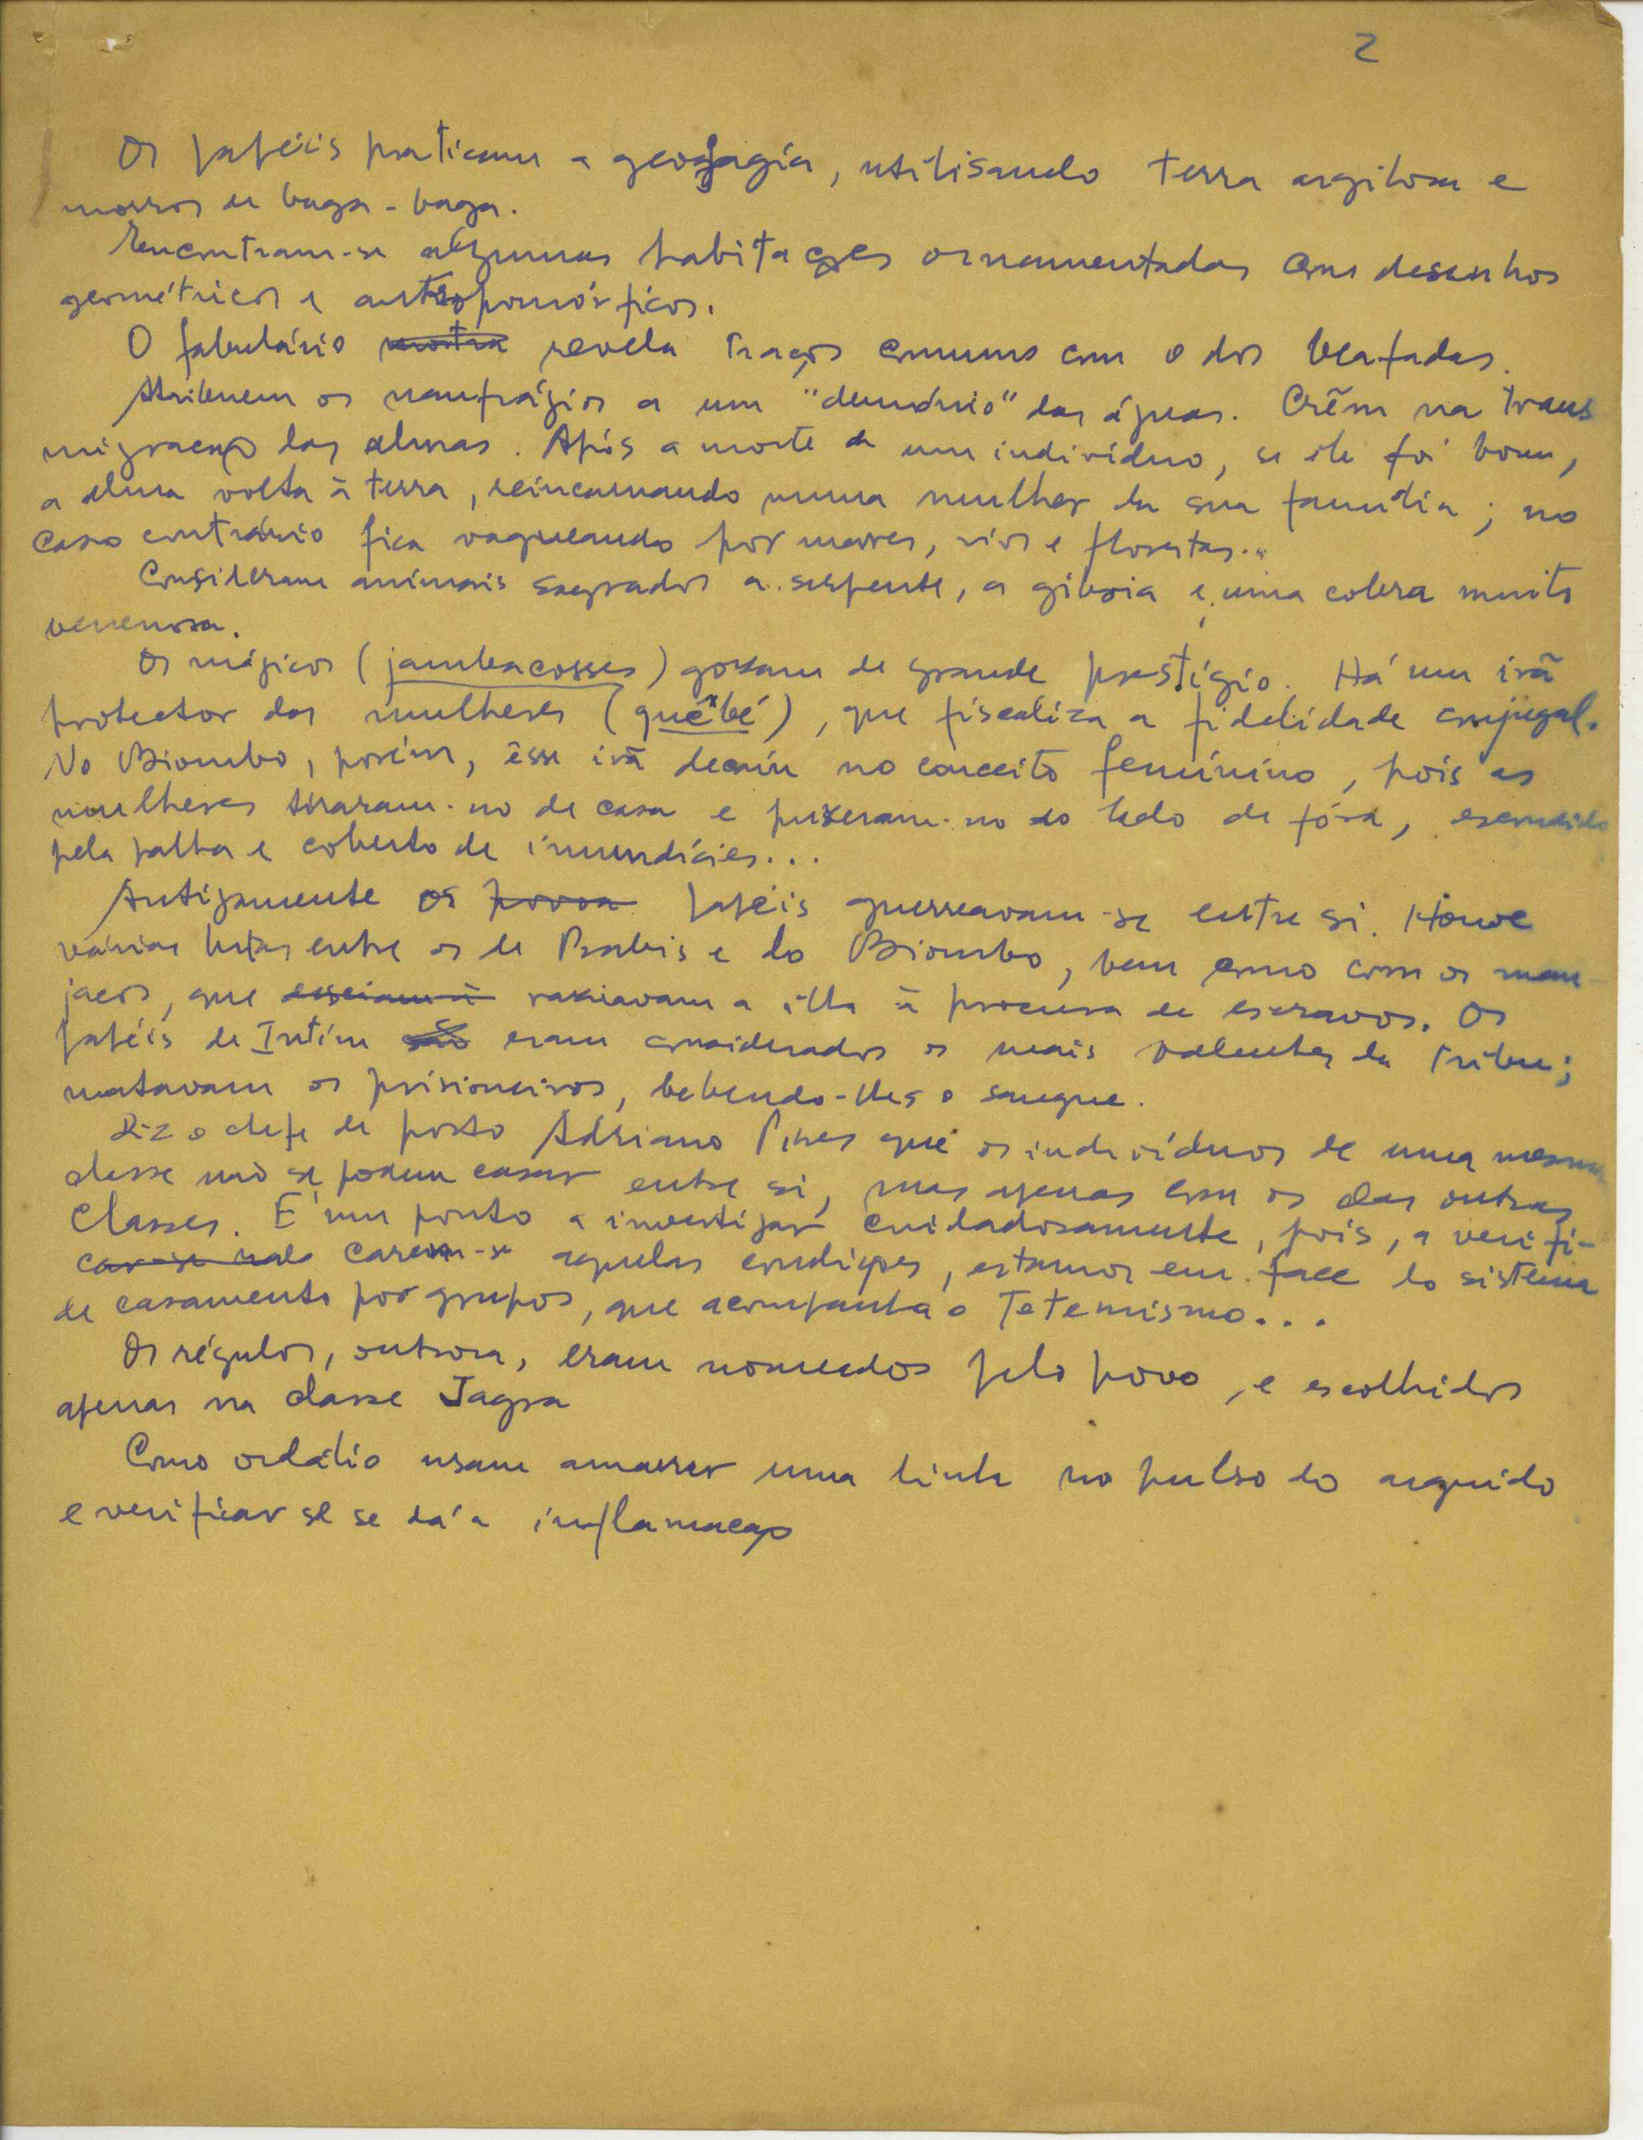 2
Os papéis praticam a geofagia, utilisando terra argilosa e
morros de baga-baga.
Encontram-se algumas habitações ornamentadas com desenhos
geométricos e antropomórficos.
O fabulário mostra revela traços comuns com o dos beafadas.
Atribuem os naufrágios a um "demónio" das águas. Crêm na trans
migração das almas. Após a morte de um indivíduo, se ele foi bom,
a alma volta à terra, reincarnando numa mulher da sua família; no
caso contrário fica vagueando por mares, rios e florestas...
Consideram animais sagrados a serpente, a giboia e uma cobra muito
venenosa.
Os mágicos (jambacosses) gozam de grande prestígio. Há um irã
protector das mulheres (quêbé), que fiscaliza a fidelidade conjugal.
No Biombo, porém, êsse irã decaíu no conceito feminino, pois as
mulheres tiraram-no de casa e puzeram-no do lado de fóra, escondido
pela palha e coberto de imundícies...
Antigamente os povoa papéis guerreavam-se entre si. Houve
várias lutas entre os de Prabis e do Biombo, bem como com os man
jacos, que raziavam a ilha à procura de escravos. Os
papéis de Intim são eram considerados os mais valentes da tribu;
matavam os prisioneiros, bebendo-lhes o sangue.
Diz o chefe de posto Adriano Pires que os indivíduos de uma mesma
classe não se podem casar entre si, mas apenas com os das outras
classes. É um ponto a investigar cuidadosamente, pois, a verifi-
car-se carem-se aquelas condições, estamos em face do sistema
de casamento por grupos, que acompanha o Totemismo...
Os régulos, outrora, eram nomeados pelo povo, e escolhidos
apenas na classe Jagra
Como ordálio usam amarrar uma linha no pulso do arguido
e verificar se se dá a inflamação